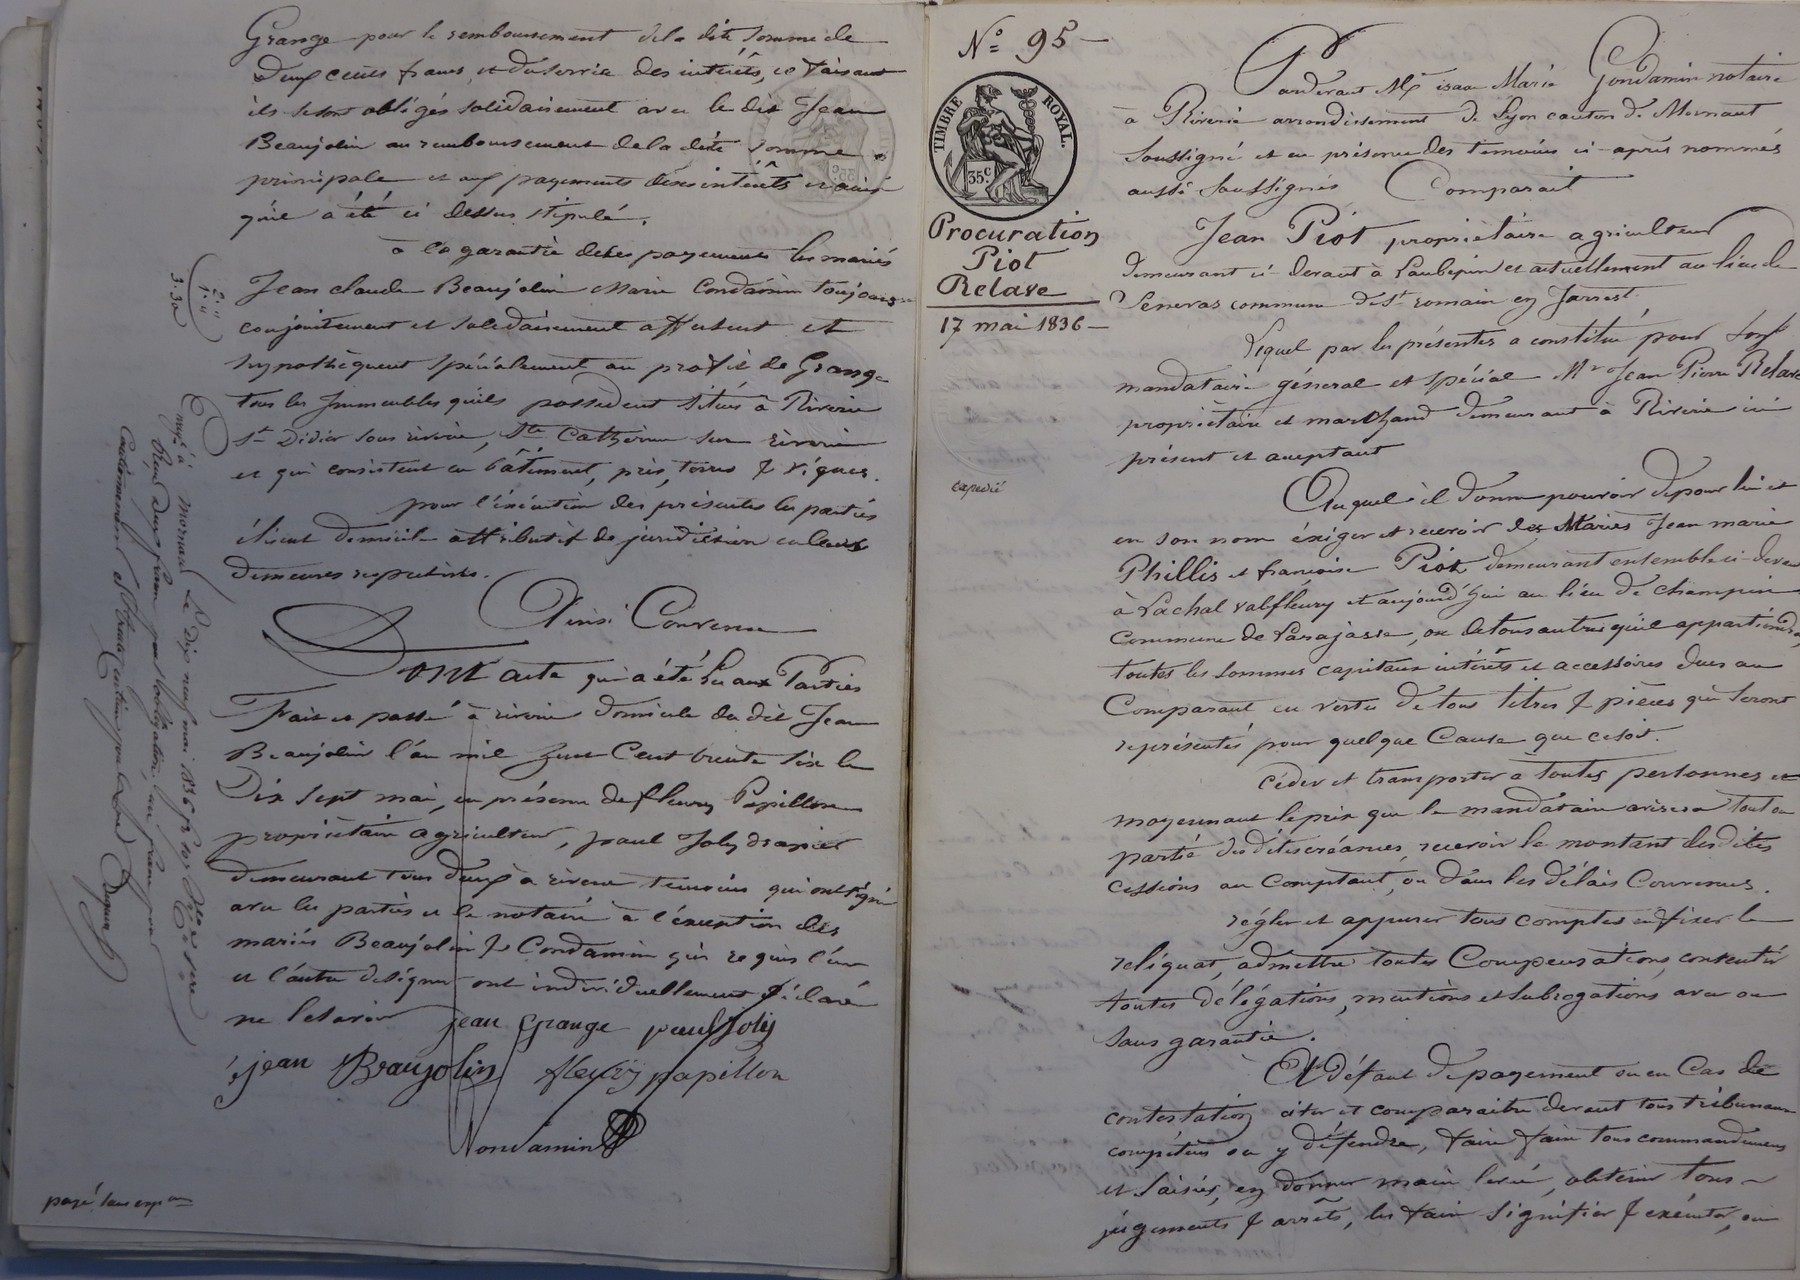 Grange pour le remboursement de la dite somme de
Deux cents francs et du service des intérêts, ce faisant
ils se sont obligés solidairement avec le dit Jean
Beaujolin au remboursement de la dite somme
principale et aux payements des es intérêts et ainsi
qu'il a été ci dessus stipulé.
à la garantie de ces payements les mariés
Jean Claude Beaujolin Marie Condamin toujours
conjointement et solidairement affectent et
hypothèquent spécialement au profit de Grange
tous les Immeubles qu'ils possèdent situés à Riverie
St Didier sous riverie, Ste Catherine sur riverie
et qui consistent en bâtiment, près, terres & vignes.
pour l'éxécution des présentes les parties
élisent domicile attributif de juridiction en leurs
demeures respectives.
Ainsi Convenu
Dont acte qui a été lu aux Parties
Fait et passé à riverie domicile du dit Jean
Beaujolin l'an mil huit Cent trente six le
Dix sept mai, en présence de fleury Papillon
propriétaire agriculteur, paul Joly drapier
demeurant tous deux à riverie témoins qui ont signé
avec les parties et le notaire à l'éxception des
mariés Beaujolin & Condamin qui requis l'un
et l'autre de signer ont individuellement déclaré
ne le savoir jean Grange paul Joly
jean Beaujolin fleury papillon
Condamin
payé sans expon
2 "
1 "
3.30
Enrgé à Mornant Le dix neuf mai 1836
Reçu deux francs pour l'obligation, un franc pour
Cautionnement et trente centimes pour le Xme
N° 95
TIMBRE ROYAL.
35 c.
Procuration
Piot
Relave
17 mai 1836
expedié
Pardevant Me isaac Marie Condamin notaire
à Riverie arrondissement de Lyon canton de Mornant
soussigné et en présence des témoins ci-après nommés
aussi soussignés Comparait
Jean Piot propriètaire agriculteur
demeurant ci-devant à Laubepin et actuellement au lieu de
Seneras commune de St romain en Jarrest.
Lequel par les présentes a constitué pour son
mandataire géneral et spécial Mr Jean Pierre Relave
propriètaire et marchand demeurant à Riverie ici
présent et acceptant
Auquel il donne pouvoir de pour lui et
en son nom éxiger et recevoir des Mariés Jean marie
Phillis et francoise Piot demeurant ensemble ci-devant
à Lachal valfleury et aujourd'hui au lieu de Champin
Commune de Larajasse, ou de tous autres qu'il appartiendra,
toutes les sommes capitaux intérêts et accessoires dues au
Comparant en vertu de tous titres & pièces qui seront
représentés pour quelque Cause que ce soit.
céder et transporter à toutes personnes et
moyennant le prix que le mandataire avisera tout ou
partie des dites créances, recevoir le montant des dites
cessions au Comptant, ou dans les délais Convenus.
régler et appurer tous comptes en fixer le
reliquat, admettre toutes Compensations, consentir
toutes délégations, mentions et subrogations avec ou
sans garantie.
A défaut de payement ou en Cas de
contestation citer et comparaitre devant tous tribunaux
compétens ou y défendre, faire faire tous commandemens
et saisies, en donner main levée, obtenir tous
jugements & arrêts, les faire signifier & exécuter, ou